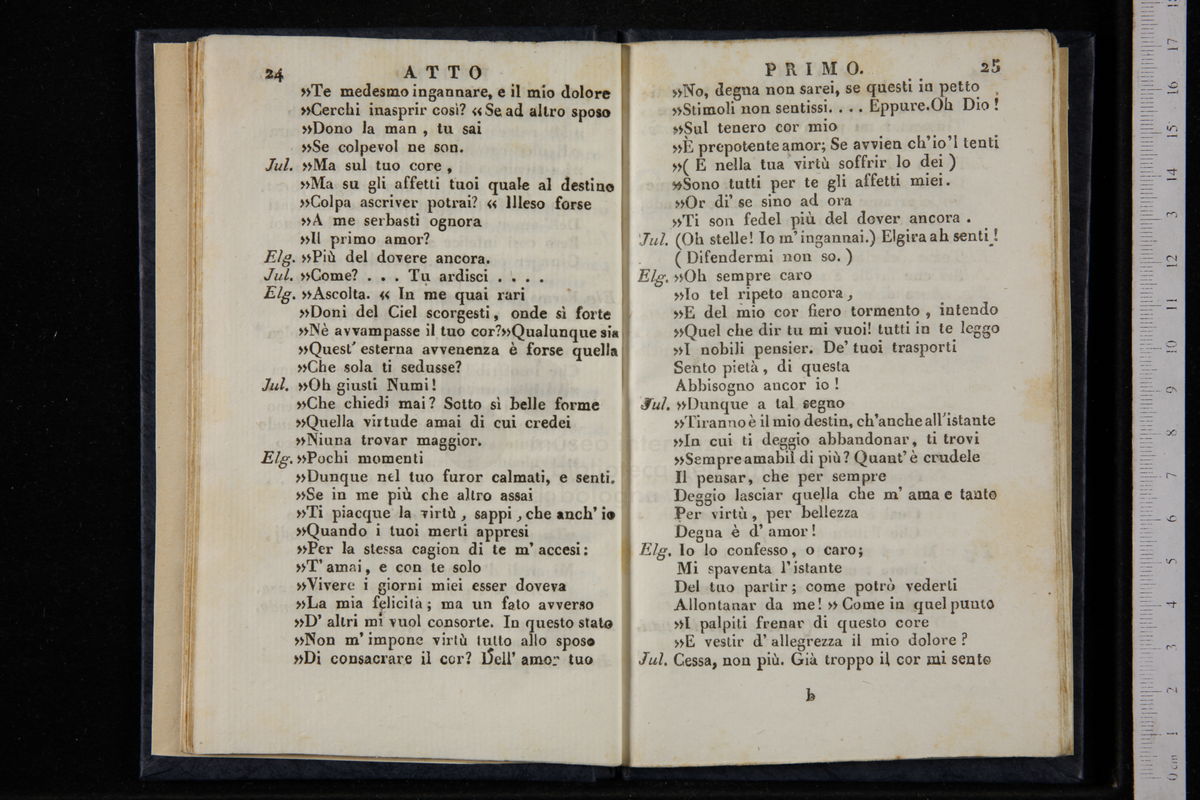 24 ATTO
»Te medesmo ingannare, e il mio dolore
»Cerchi inasprir così? «Se ad altro sposo
»Dono la man , tu sai
»Se colpevol ne son.
Jul. »Ma sul tuo core ,
»Ma su gli affetti tuoi quale al destino
»Colpa ascriver potrai? « Illeso forse
»A me serbasti ognora
»Il primo amor?
Elg. »Più del dovere ancora.
Jul. »Come? . . . Tu ardisci . . . .
Elg. »Ascolta. « In me quai rari
»Doni del Ciel scorgesti, onde sì forte
»Nè avvampasse il tuo cor?»Qualunque sia
»Quest' esterna avvenenza è forse quella
»Che sola ti sedusse?
Jul. »Oh giusti Numi!
»Che chiedi mai? Sotto sì belle forme
»Quella virtude amai di cui credei
»Niuna trovar maggior.
Elg. »Pochi momenti
»Dunque nel tuo furor calmati, e senti.
»Se in me più che altro assai
»Ti piacque la virtù , sappi , che anch' io
»Quando i tuoi merti appresi
»Per la stessa cagion di te m' accesi:
»T' amai, e con te solo
»Vivere i giorni miei esser doveva
»La mia felicità; ma un fato avverso
»D' altri mi vuol consorte. In questo stato
»Non m' impone virtù tutto allo sposo
»Di consacrare il cor? Dell' amor tuo
PRIMO. 25
»No, degna non sarei, se questi in petto
»Stimoli non sentissi. . . . Eppure.Oh Dio !
»Sul tenero cor mio
»È prepotente amor; Se avvien ch'io'l tenti
»( E nella tua virtù soffrir lo dei )
»Sono tutti per te gli affetti miei.
»Or di' se sino ad ora
»Ti son fedel più del dover ancora .
Jul. (Oh stelle! Io m' ingannai.) Elgira ah senti !
( Difendermi non so. )
Elg. »Oh sempre caro
»Io tel ripeto ancora,
»E del mio cor fiero tormento , intendo
»Quel che dir tu mi vuoi! tutti in te leggo
»I nobili pensier. De' tuoi trasporti
Sento pietà , di questa
Abbisogno ancor io !
Jul. »Dunque a tal segno
»Tiranno è il mio destin, ch'anche all'istante
»In cui ti deggio abbandonar, ti trovi
»Sempre amabil di più? Quant' è crudele
Il pensar, che per sempre
Deggio lasciar quella che m' ama e tanto
Per virtù , per bellezza
Degna è d' amor!
Elg. Io lo confesso, o caro;
Mi spaventa l'istante
Del tuo partir; come potrò vederti
Allontanar da me! » Come in quel punto
»I palpiti frenar di questo core
»E vestir d' allegrezza il mio dolore ?
Jul. Cessa, non più. Già troppo il cor mi sento
b